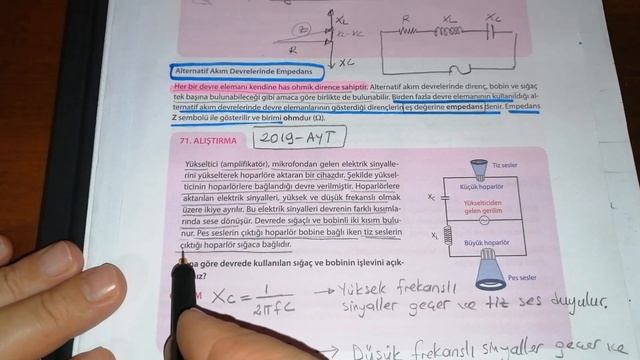 XL
Z
XL-XC
R
XC
R
XL
XC
Alternatif Akım Devrelerinde Empedans
Her bir devre elemanı kendine has ohmik dirence sahiptir. Alternatif akım devrelerinde direnç, bobin ve sığaç
tek başına bulunabileceği gibi amaca göre birlikte de bulunabilir. Birden fazla devre elemanının kullanıldığı al-
ternatif akım devrelerinde devre elemanlarının gösterdiği dirençlerin eş değerine empedans denir. Empedans
Z sembolü ile gösterilir ve birimi ohmdur (Ω).
71. ALIŞTIRMA
2019-AYT
Yükseltici (amplifikatör), mikrofondan gelen elektrik sinyalle-
rini yükselterek hoparlöre aktaran bir cihazdır. Şekilde yüksel-
ticinin hoparlörlere bağlandığı devre verilmiştir. Hoparlörlere
aktarılan elektrik sinyalleri, yüksek ve düşük frekanslı olmak
üzere ikiye ayrılır. Bu elektrik sinyalleri devrenin farklı kısımla-
rında sese dönüşür. Devrede sığaçlı ve bobinli iki kısım bulu-
nur. Pes seslerin çıktığı hoparlör bobine bağlı iken tiz seslerin
çıktığı hoparlör sığaca bağlıdır.
göre devrede kullanılan sığaç ve bobinin işlevini açık-
Tiz sesler
Küçük hoparlör
XC
Yükselticiden
gelen gerilim
XL
Büyük hoparlör
Pes sesler
XC = 1/2πfC → Yüksek frekanslı
sinyaller geçer ve tiz ses duyulur.
→ Düşük frekanslı sinyaller geçer ve